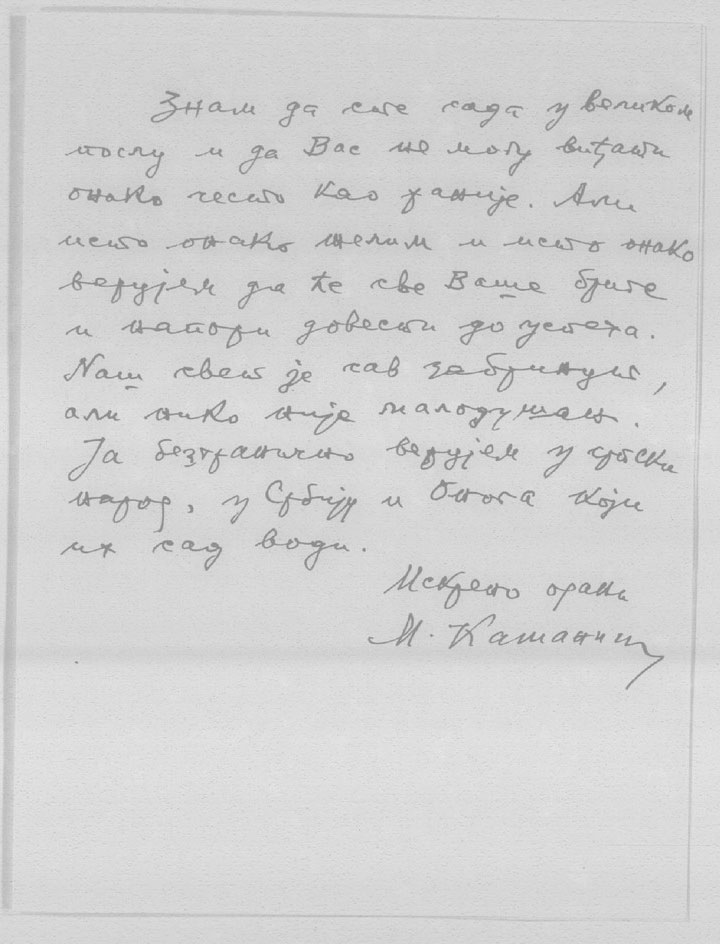 Знам да сте сада у великом
послу и да Вас не могу виђати
онако често као раније. Али
исто онако желим и исто онако
верујем да ће све Ваше бриге
и напори довести до успеха.
Наш свет је сав забринут,
али нико није малодушан.
Ја безгранично верујем у српски
народ, у Србију и Онога који
их сад води.
Искрено одани
М. Кашанин